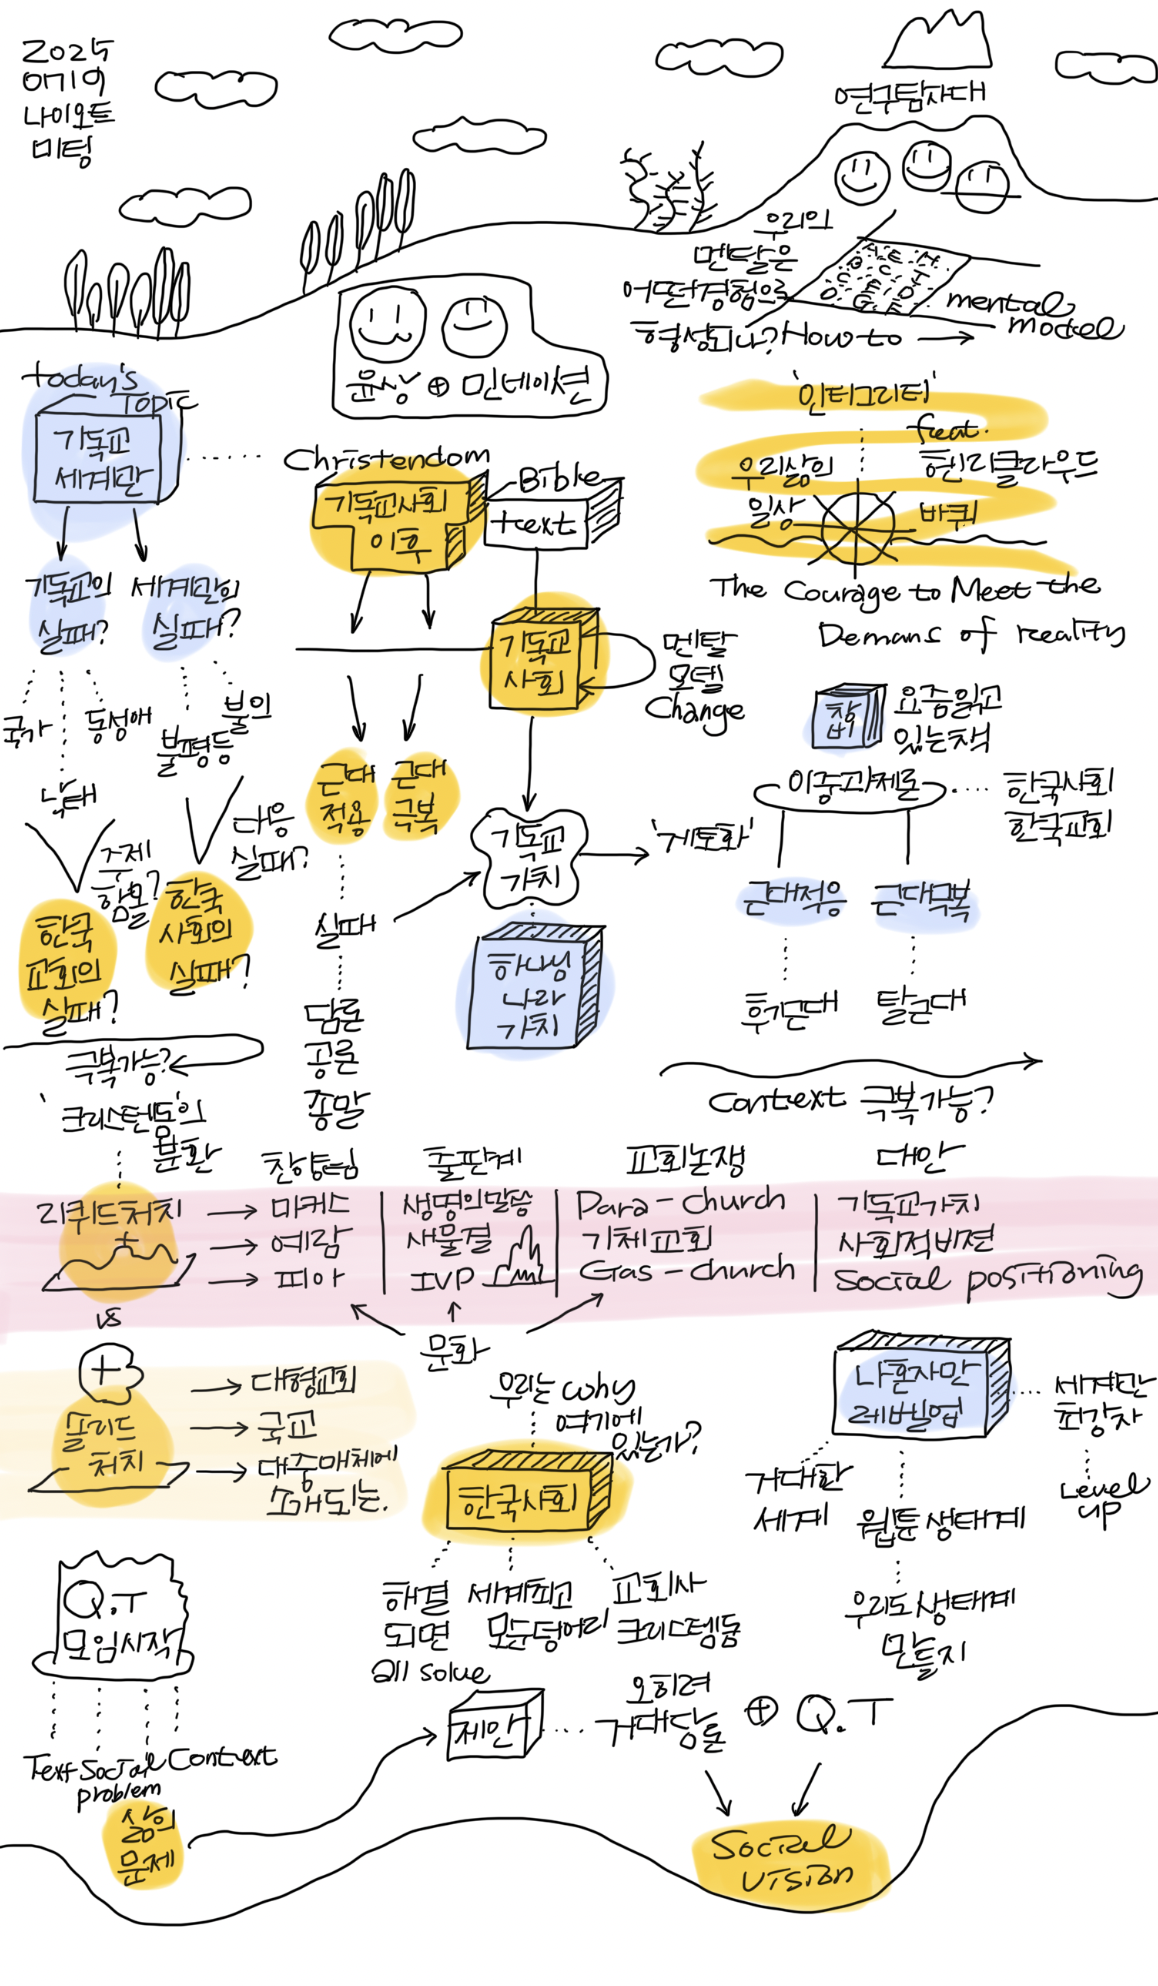 2025
나이오트
미팅
연구탐사대
우리의
멘탈은
어떤경험으로
형성되나?
How to
mental
model
윤상 ⊕ 민네이션
today's
Topic
기독교
세계관
Christendom
기독교사회
이후
Bible
text
'인테그리티'
feat.
헨리클라우드
우리삶의
일상
바퀴
The Courage to Meet the
Demans of reality
기독교의
실패?
세계관의
실패?
국가
동성애
낙태
불평등
불의
대응
실패?
주제
함몰?
한국
교회의
실패?
한국
사회의
실패?
극복가능?
'크리스텐돔'의
문화
기독교
사회
멘탈
모델
Change
근대
적응
근대
극복
실패
담론
공론
종말
기독교
가치
'게토화'
하나님
나라
가치
창비
요즘읽고
있는책
이중과제론
한국사회
한국교회
근대적응
근대극복
후기근대
탈근대
Context 극복가능?
찬양팀
출판계
교회논쟁
대안
리퀴드처치
마커스
예람
피아
생명의말씀
새물결
IVP
Para-church
기체교회
Gas-church
기독교가치
사회적비젼
social positioning
vs
문화
솔리드
처치
대형교회
국교
대중매체에
소개되는.
우리는 why
여기에
있는가?
한국사회
해결
되면
all solve
세계최고
모순덩어리
교회사
크리스텐돔
나혼자만
레벨업
세계관
최강자
Level
up
거대한
세계
웹툰생태계
우리도생태계
만들지
Q.T
모임시작
Text
Social
problem
Context
삶의
문제
제안
오히려
거대담론
⊕ Q.T
Social
vision